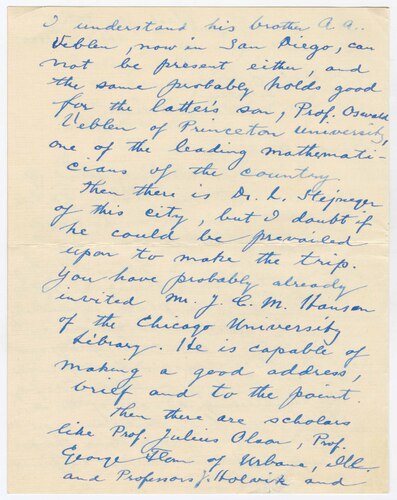 I understand his brother A. A.
Veblen, now in San Diego, can
not be present either, and
the same probably holds good
for the latter's son, Prof. Oswald
Veblen of Princeton University,
one of the leading mathemati-
cians of the country.
Then there is Dr. L. Stejneger
of this city, but I doubt if
he could be prevailed
upon to make the trip.
You have probably already
invited Mr. J. C. M. Hanson
of the Chicago University
Library. He is capable of
making a good address,
brief and to the point.
Then there are scholars
like Prof. Julius Olson, Prof.
George Flom of Urbana, Ill.
and Professors J. Holvik and